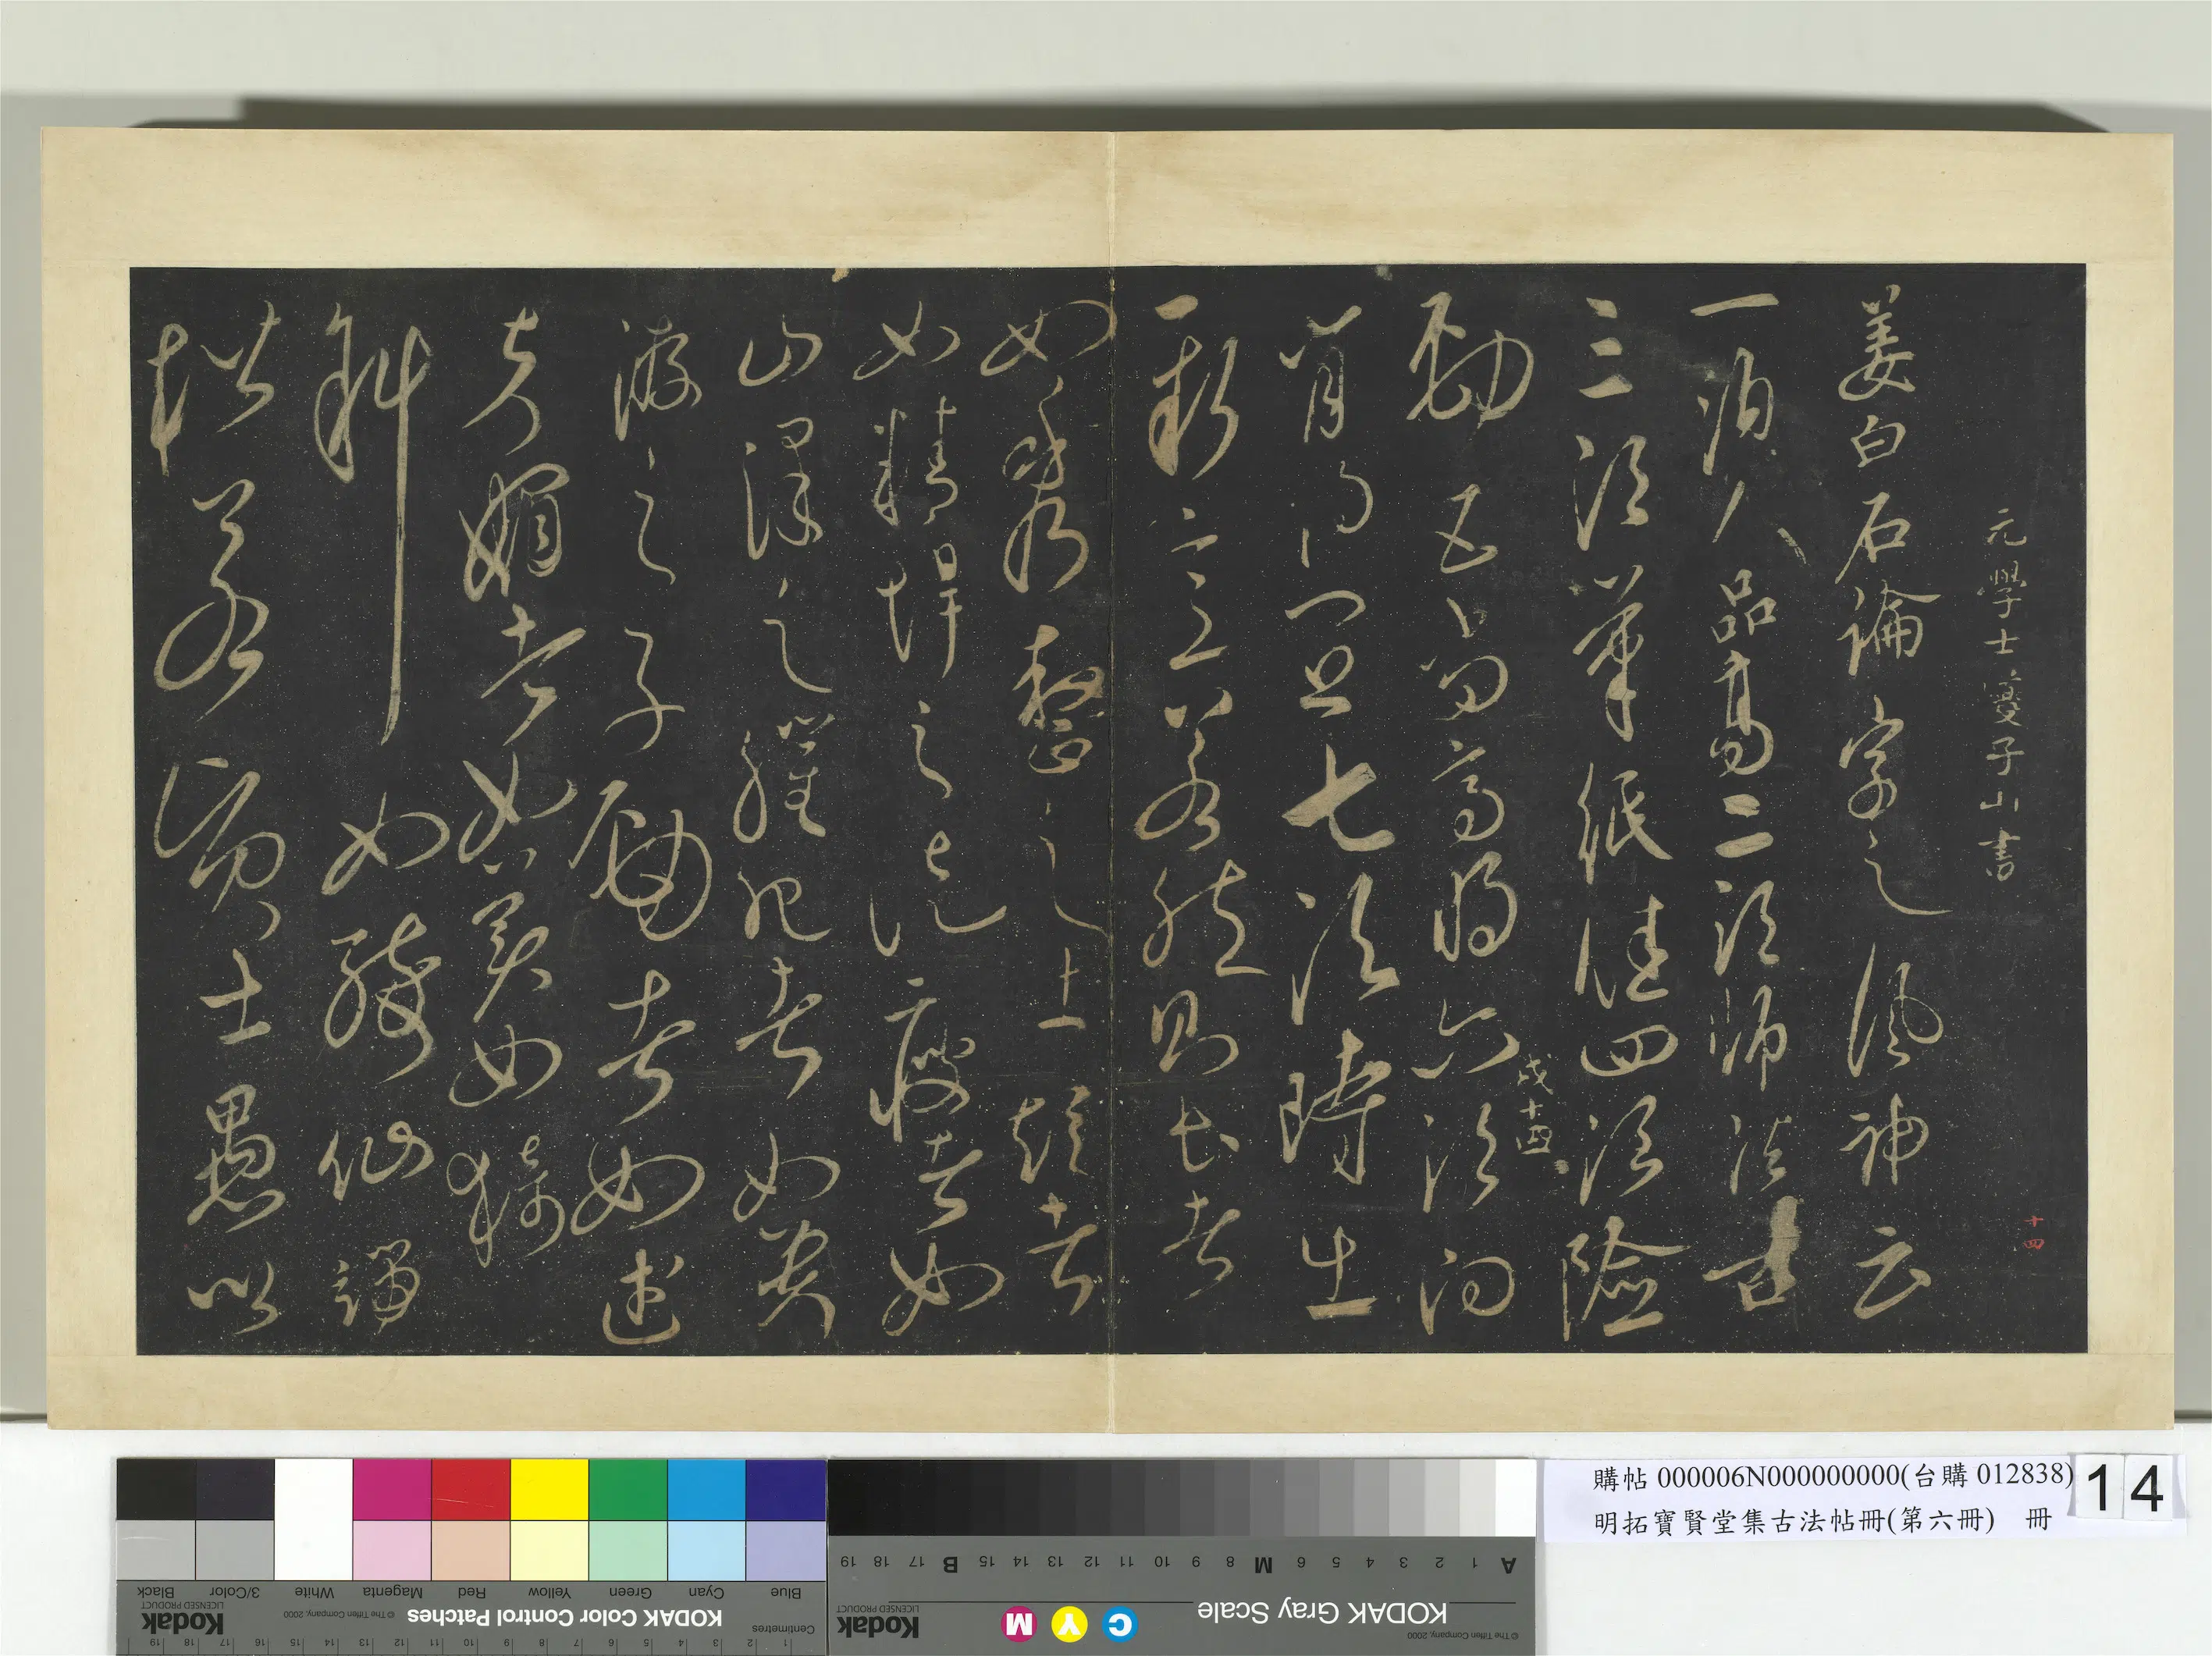 元學士夔子山書
姜白石論字之風神云
一須人品高二須師法古
三須筆紙佳四須險
戌十四
勁五須高明六須向
背得宜七須時出
一新意若然則長者
如秀整之士短者
如精悍之徒瘦者如
山澤之癯肥者如貴
游之子勁者如武
夫媚者如美女欹
斜如醉仙端
楷若賢士愚以
十四
購帖 000006N000000000(台購 012838)
明拓寶賢堂集古法帖冊(第六冊) 冊
14
KODAK Color Control Patches
Blue Cyan Green Yellow Red Magenta White 3/Color Black
© The Tiffen Company, 2000
Kodak
LICENSED PRODUCT
Centimetres
KODAK Gray Scale
C Y M
Kodak
LICENSED PRODUCT
© The Tiffen Company, 2000
A 1 2 3 4 5 6 M 8 9 10 11 12 13 14 15 B 17 18 19